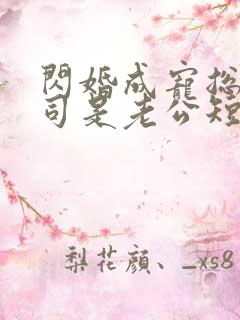 閃婚成寵总
司是老公短
梨花顔、_xs8